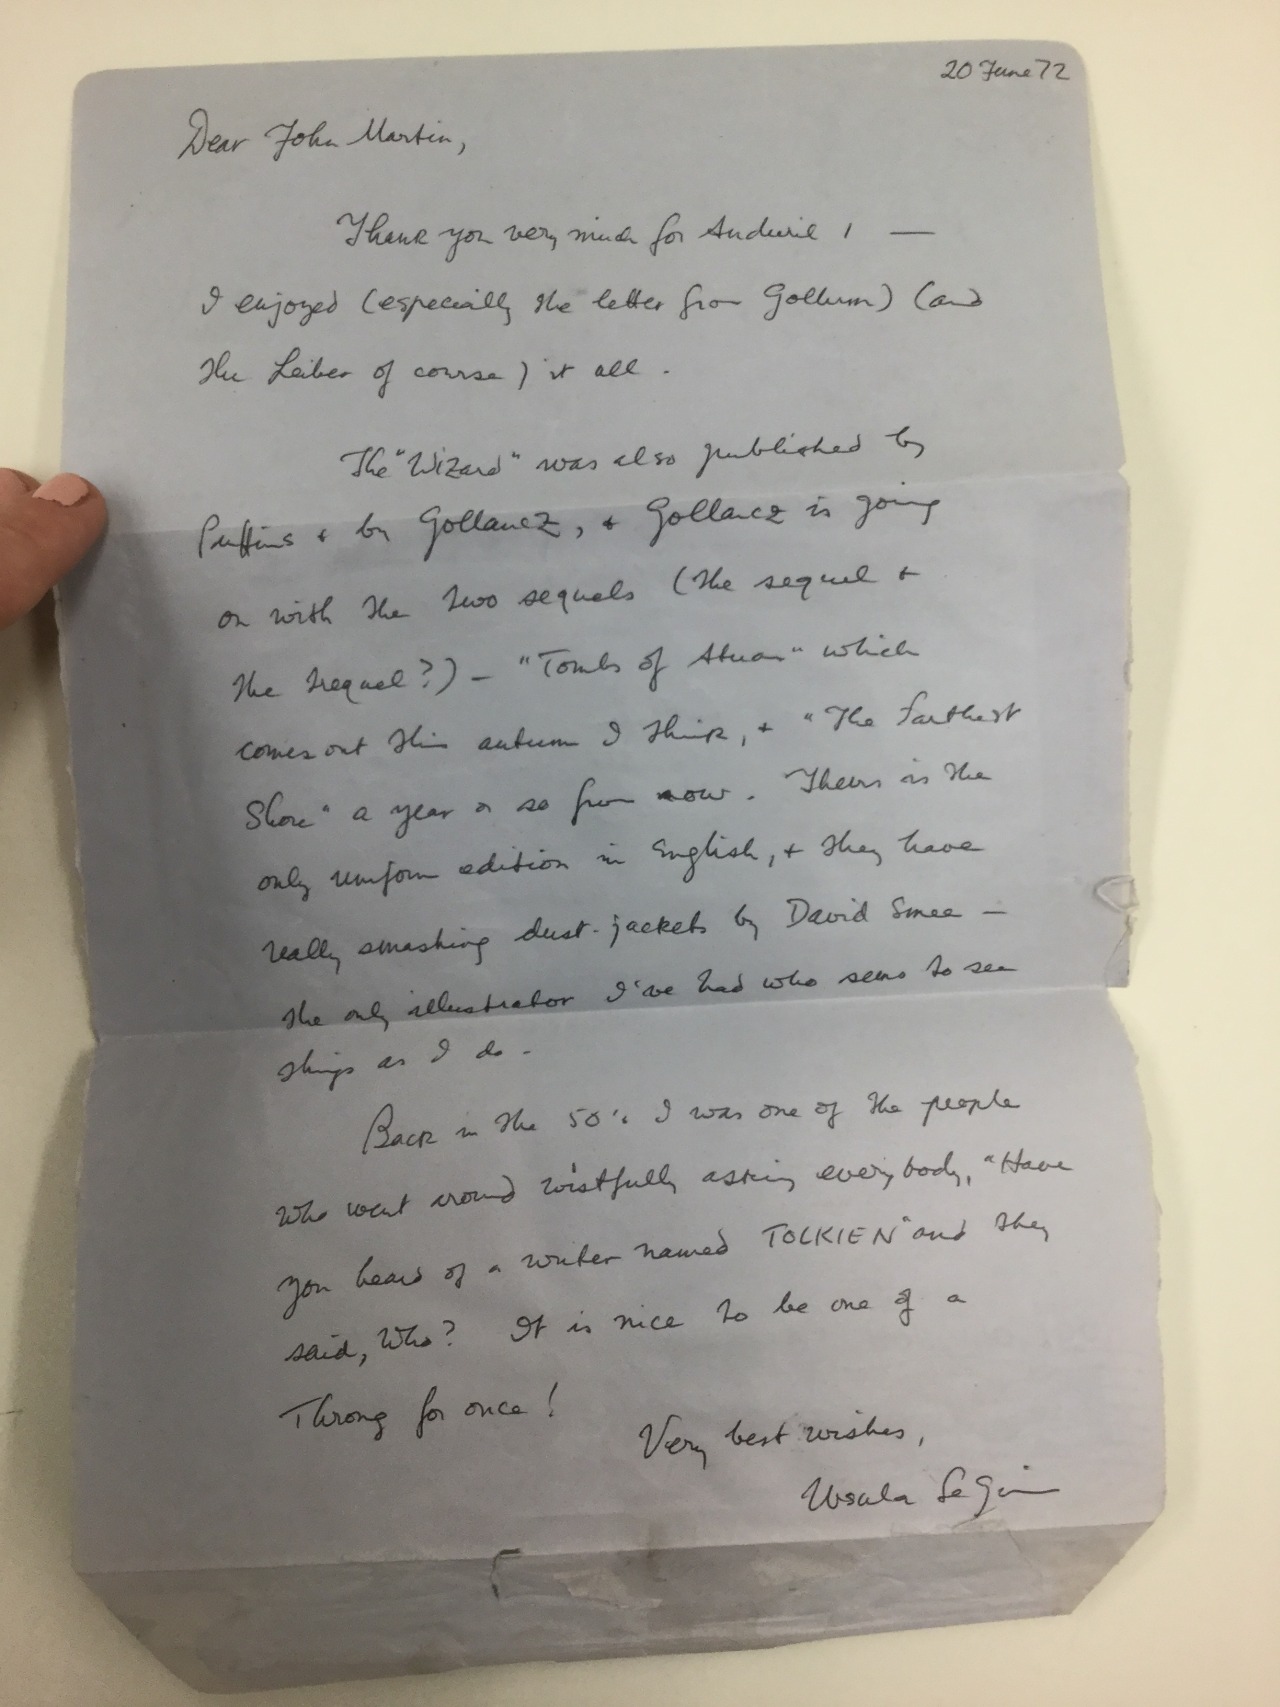 20 June 72
Dear John Martin,
Thank you very much for Anduril 1 —
I enjoyed (especially the letter from Gollum) (and
the Leiber of course) it all.
The "Wizard" was also published by
Puffins + by Gollancz, + Gollancz is going
on with the two sequels (the sequel +
the trequel?) – "Tombs of Atuan" which
comes out this autumn I think, + "The Farthest
Shore" a year or so from now. Theirs is the
only uniform edition in English, + they have
really smashing dust-jackets by David Smee –
the only illustrator I've had who seems to see
things as I do.
Back in the 50's I was one of the people
who went around wistfully asking everybody, "Have
you heard of a writer named TOLKIEN" and they
said, Who? It is nice to be one of a
Throng for once!
Very best wishes,
Ursula Le Guin